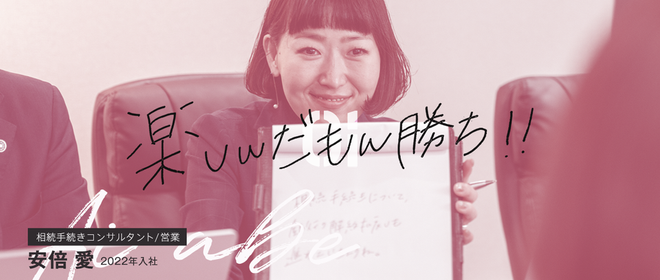 楽しんだもん勝ち!!
Ai Abe
相続手続きコンサルタント/営業
安倍 愛 2022年入社